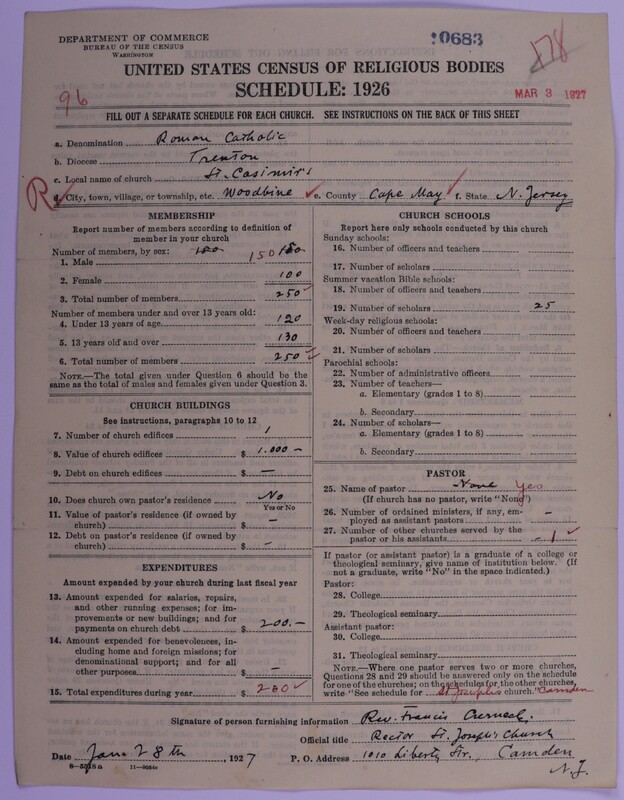 DEPARTMENT OF COMMERCE
BUREAU OF THE CENSUS
WASHINGTON
20683
178
UNITED STATES CENSUS OF RELIGIOUS BODIES
SCHEDULE: 1926
MAR 3 1927
96
FILL OUT A SEPARATE SCHEDULE FOR EACH CHURCH. SEE INSTRUCTIONS ON THE BACK OF THIS SHEET
a. Denomination Roman Catholic
b. Diocese Trenton
c. Local name of church St. Casimir's
R d. City, town, village, or township, etc. Woodbine e. County Cape May f. State N. Jersey
MEMBERSHIP
Report number of members according to definition of
member in your church
Number of members, by sex:
1. Male 150
2. Female 100
3. Total number of members 250
Number of members under and over 13 years old:
4. Under 13 years of age 120
5. 13 years old and over 130
6. Total number of members 250
NOTE.—The total given under Question 6 should be the
same as the total of males and females given under Question 3.
CHURCH BUILDINGS
See instructions, paragraphs 10 to 12
7. Number of church edifices 1
8. Value of church edifices $ 1.000 —
9. Debt on church edifices $ —
10. Does church own pastor's residence No
Yes or No
11. Value of pastor's residence (if owned by
church) $ —
12. Debt on pastor's residence (if owned by
church) $ —
EXPENDITURES
Amount expended by your church during last fiscal year
13. Amount expended for salaries, repairs,
and other running expenses; for im-
provements or new buildings; and for
payments on church debt $ 200.—
14. Amount expended for benevolences, in-
cluding home and foreign missions; for
denominational support; and for all
other purposes $ —
15. Total expenditures during year $ 200
CHURCH SCHOOLS
Report here only schools conducted by this church
Sunday schools:
16. Number of officers and teachers
17. Number of scholars
Summer vacation Bible schools:
18. Number of officers and teachers
19. Number of scholars 25
Week-day religious schools:
20. Number of officers and teachers
21. Number of scholars
Parochial schools:
22. Number of administrative officers
23. Number of teachers—
a. Elementary (grades 1 to 8)
b. Secondary
24. Number of scholars—
a. Elementary (grades 1 to 8)
b. Secondary
PASTOR
25. Name of pastor None Yes
(If church has no pastor, write "None")
26. Number of ordained ministers, if any, em-
ployed as assistant pastors —
27. Number of other churches served by the
pastor or his assistants - 1
If pastor (or assistant pastor) is a graduate of a college or
theological seminary, give name of institution below. (If
not a graduate, write "No" in the space indicated.)
Pastor:
28. College
29. Theological seminary
Assistant pastor:
30. College
31. Theological seminary
NOTE.—Where one pastor serves two or more churches,
Questions 28 and 29 should be answered only on the schedule
for one of the churches; on the schedules for the other churches,
write "See schedule for St Joseph's church." Camden
Signature of person furnishing information Rev. Francis
Official title Rector St. Joseph's Church
Date Jan 28th, 1927 P. O. Address 1010 Liberty Str., Camden
N. J.